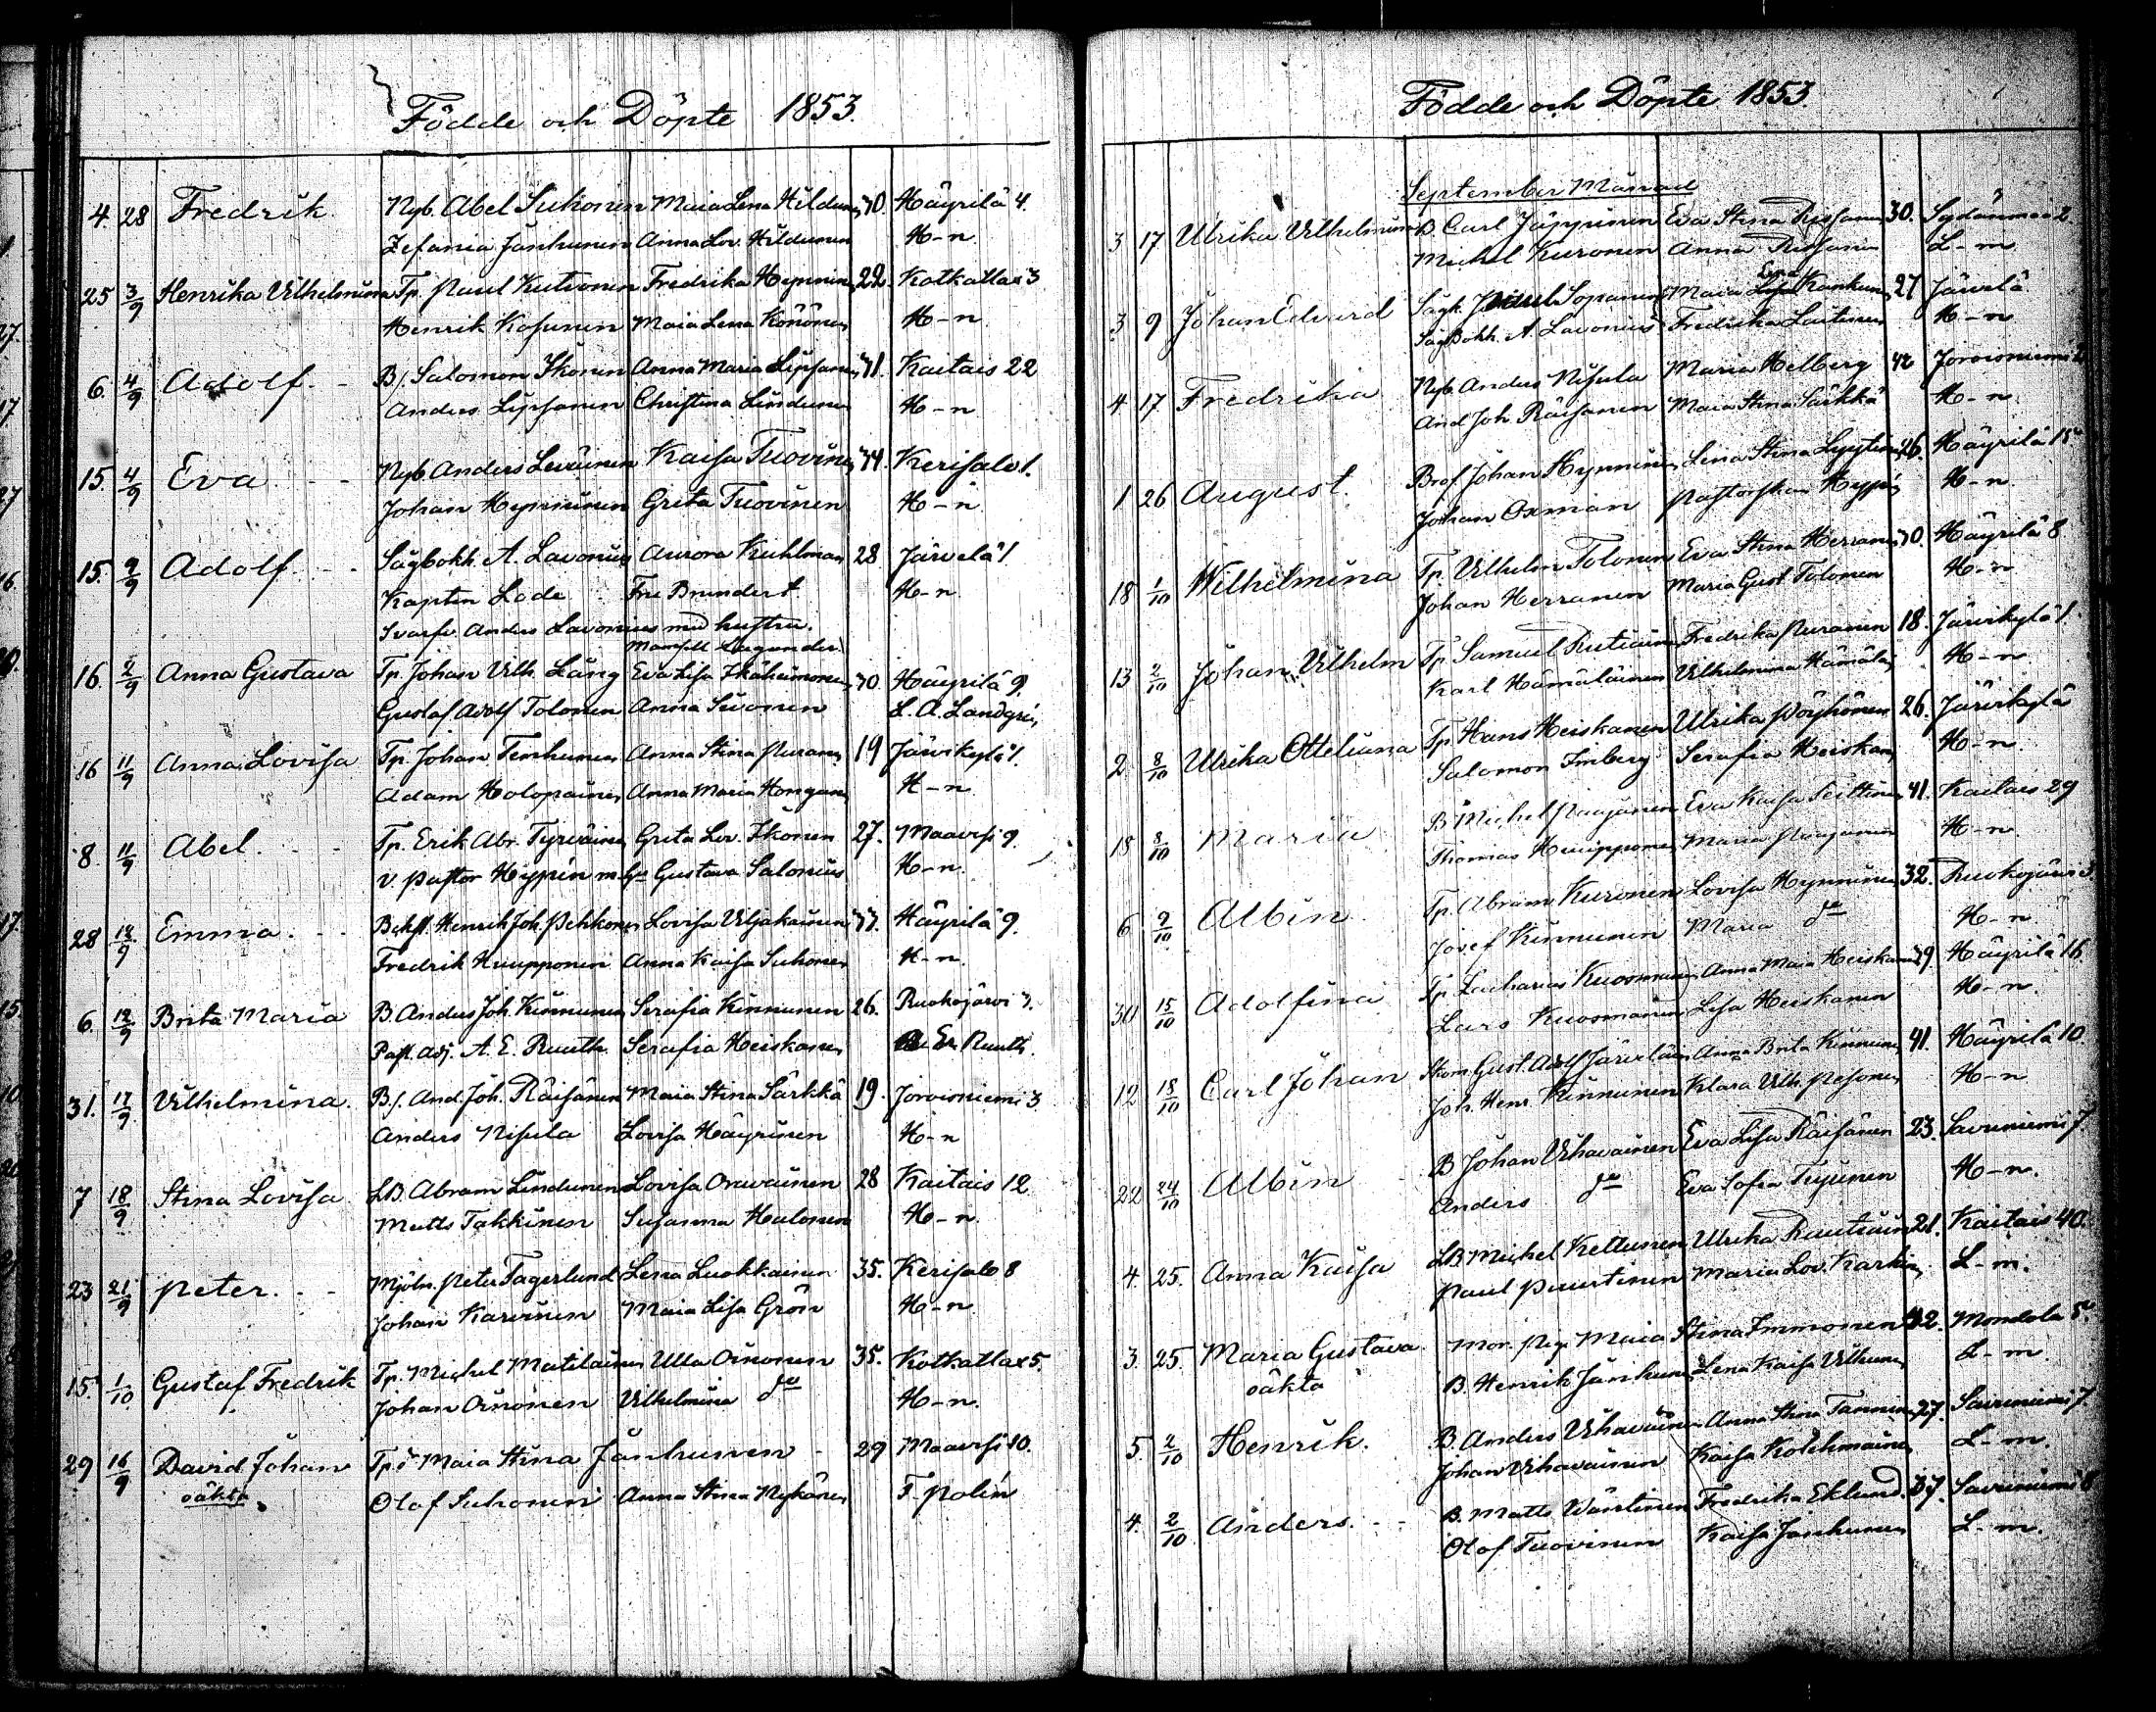 Födde och Döpte 1853.
4. 28 Fredrik Nyb. Abel Suhonen Maia Lena Hildunen 30. Häyrilä 4.
Zefania Jänhunen Anna Lov. Hildunen H-n.
25 3/9 Henrika Vilhelmina Tp. Paul Kutvonen Fredrika Hynninen 22. Kotkatlax 3
Henrik Kosunen Maia Lena Könönen H-n.
6. 4/9 Adolf. B/. Salomon Ikonen Anna Maria Lipsanen 41. Kaitais 22
Anders Lipsanen Christina Lindunen H-n
15. 4/9 Eva Nyb. Anders Leväinen Kaisa Tuovinen 44. Kerisalo 1.
Johan Hynninen Greta Tuovinen H-n.
15. 9/9 Adolf. Sågbokh. A. Lavonius Aurora Kuhlman 28 Järvelä 1.
Kapten Lode Fru Brunders H-n.
Svarfv. Anders Lavonius med hustru.
Mamsell Lagander.
16. 9/9 Anna Gustava Tp. Johan Vilh. Lång Eva Lisa Ikäheimonen 30. Häyrilä 9.
Gustaf Adolf Tolonen Anna Sivonen L. A. Landgrén
16 11/9 Anna Lovisa Tp. Johan Tenhunen Anna Stina Puranen 19 Järvikylä 1.
Adam Holopainen Anna Maria Honganen H-n.
8. 11/9 Abel. Tp. Erik Abr. Tyrväinen Greta Lov. Ikonen 27. Maavesi 9.
v. Pastor Hyppén m. hu Gustava Salonius H-n.
28 12/9 Emma. Henrik Joh. Pehkonen Lovisa Viljakainen 33. Häyrilä 9.
Fredrik Huupponen Anna Kaisa Suhonen H-n.
6. 12/9 Brita Maria B. Anders Joh. Kinnunen Serafia Kinnunen 26. Ruokojärvi 3.
Past. adj. A. E. Ruuth Serafia Heiskanen A. E. Ruuth.
31. 17/9 Vilhelmina. B/. And. Joh. Räisänen Maia Stina Särkkä 19. Jorvioniemi 3
Anders Nisula Lovisa Häyrinen H-n
7 18/9 Stina Lovisa LB. Abram Lindunen Lovisa Oravainen 28 Kaitais 12
Matts Takkinen Susanna Halonen H-n.
23 21/9 Peter. Mjöln. Peter Fagerlund Lena Luokkanen 35. Kerisalo 8
Johan Karvinen Maia Lisa Grön H-n
15. 1/10 Gustaf Fredrik Tp. Michel Matilainen Ulla Oinonen 35. Kotkatlax 5.
Johan Oinonen Vilhelmina do H-n.
29 16/9 David Johan Tp.d. Maia Stina Jänhunen 29 Maavesi 10.
oäkta. Olof Suhonen Anna Stina Nykänen F. Polén
Födde och Döpte 1853.
September Månad
3 17 Ulrika Vilhelmina B. Carl Jäppinen Eva Stina Rissanen 30. Sydänmaa 2.
Michel Kuronen Anna Rissanen L-m
3 9 Johan Edvard Sågk. Sopanen Maia Lena Kankunen 27 Järvelä
Sågbokh. A. Lavonius Fredrika Laitinen H-n
4 17 Fredrika Nyb. Anders Nisula Maria Helberg 42 Jorvioniemi
And Joh. Räisänen Maia Stina Särkkä H-n.
1 26 August. Johan Hynninen Lena Stina Lyytinen 26. Häyrilä 15
Johan Oxman Pastorskan Hyppén H-n.
18 1/10 Wilhelmina Tp. Vilhelm Tolonen Eva Stina Herranen 30. Häyrilä 8
Johan Herranen Maria Gust Tolonen H-n
13 2/10 Johan Vilhelm Tp. Samuel Rutiainen Fredrika Puranen 18. Järvikylä 1.
Karl Hämäläinen Vilhelmina Hämälä H-n.
2 8/10 Ulrika Otteliana Tp. Hans Heiskanen Ulrika Pöyhönen 26. Järvikylä
Salomon Imberg Serafia Heiskanen H-n.
18 8/10 Maria B Michel Paajanen Eva Kaisa Teittinen 41. Kaitais 29
Thomas Huupponen Maria Paajanen H-n.
6 9/10 Albin. Tp. Abram Kuronen Lovisa Hynninen 32. Ruokojärvi 3.
Josef Kinnunen Maria do H-n.
30 15/10 Adolfina Tp. Zacharias Kuosmanen Anna Maia Heiskanen 39. Häyrilä 16.
Lars Kuosmanen Lisa Heiskanen H-n.
12 18/10 Carl Johan Gust. Adolf Järveläin Anna Brita Kinnunen 41. Häyrilä 10.
Joh. Henr. Kinnunen Klara Vilh. Pesonen H-n
22 24/10 Albin B Johan Vihavainen Eva Lisa Räisänen 23. Savuniemi 7
Anders do Eva Sofia Tujunen H-n.
4. 25. Anna Kaisa LB Michel Kettunen Ulrika Rautiain 21. Kaitais 40.
Paul Puurtinen Maria Lov. Karkin L-m.
3. 25. Maria Gustava Mor. Pig. Maia Stina Immonen 42. Mondola 5.
oäkta B. Henrik Jänhunen Lena Kaisa Vilhunen L-m.
5. 2/10 Henrik. B. Anders Vihavainen Anna Stina Tanninen 27. Savuniemi 7.
Johan Vihavainen Kaisa Kolehmainen L-m.
4. 2/10 Anders. B. Matts Wäntinen Fredrika Eklund. 37. Savuniemi 8
Olof Tuovinen Kaisa Jänhunen L-m.